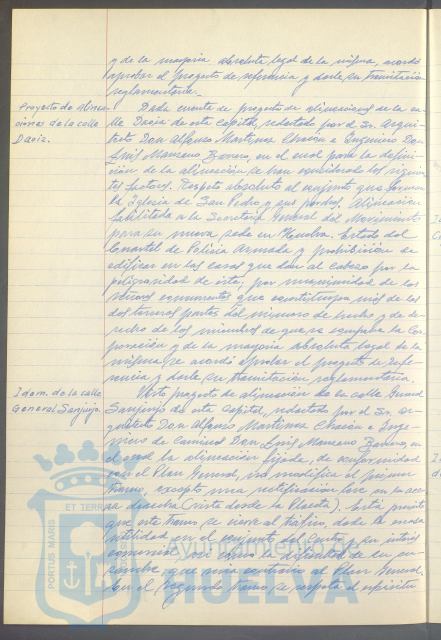 y de la mayoría absoluta legal de la misma, acordó
aprobar el proyecto de referencia y darle su tramitación
reglamentaria.
Proyecto de alinea-
ciones de la calle
Daoiz.
Dada cuenta de proyecto de alineaciones de la ca-
lle Daoiz de esta Capital, redactado por el Sr. Arqui-
tecto Don Alfonso Martínez Chacón e Ingeniero Don
Luis Manzano Borrero, en el cual para la defini-
ción de la alineación se han considerado los siguien-
tes factores. Respeto absoluto al conjunto que forman
la Iglesia de San Pedro y sus porches. Alineación
facilitada a la Secretaría General del Movimiento
para su nueva sede en Huelva. Estado del
Cuartel de Policía Armada y prohibición de
edificar en las casas que dan al cabezo por la
peligrosidad de este, por unanimidad de los
señores concurrentes que constituyen más de las
dos terceras partes del número de hecho y de de-
recho de los miembros de que se compone la Cor-
poración y de la mayoría absoluta legal de la
misma, se acordó aprobar el proyecto de refe-
rencia y darle su tramitación reglamentaria.
Idem. de la calle
General Sanjurjo.
Visto proyecto de alineación de la calle General
Sanjurjo de esta Capital, redactado por el Sr. Ar-
quitecto Don Alfonso Martínez Chacón e Inge-
niero de Caminos Don Luis Manzano Borrero, en
el cual la alineación fijada, de conformidad
con el Plan General, no modifica el primer
tramo, excepto una rectificación leve en la ace-
ra derecha (vista desde la Placeta). Está previsto
que este tramo se cierre al tráfico, dada la
en el conjunto del Centro y su interés
comercial, así como la dificultad de su en-
sanche, que sería contrario al Plan General.
En el segundo tramo se respeta el edificio
PORTUS MARIS ET TERRAE
Ayuntamiento de
HUELVA